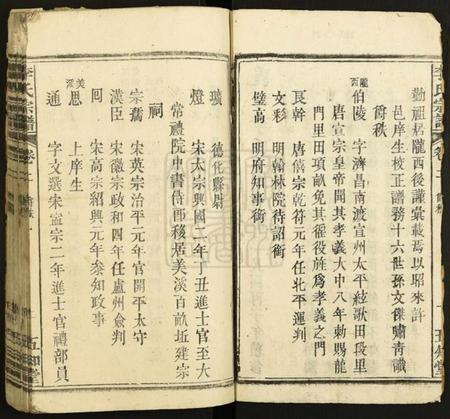 勸祖居隴西後謹彙載焉以昭來許
邑庠生校正譜務十六世孫文傑嘯青識
爵秩
龍溪
伯陵 字濟昌南渡宣州太平絃歌田段里
唐宣宗皇帝聞其孝義大中八年勅賜龍
門里田項畝免其徭役旌為孝義之門
長幹 唐僖宗乾符元年任北平運判
文彩 明翰林院待詔銜
璧高 明府知事銜
璣 德化縣尉
燈 宋太宗興國二年丁丑進士官至大
常禮院中書侍郎移居美溪百畝坵建宗
祠
宗喬 宋英宗治平元年官開平太守
漢臣 宋徽宗政和四年任盧州僉判
回 宋高宗紹興元年叅知政事
美溪
思 上庠生
通 字文選宋寧宗二年進士官禮部員
李氏宗譜 卷二 爵秩 一 五知堂